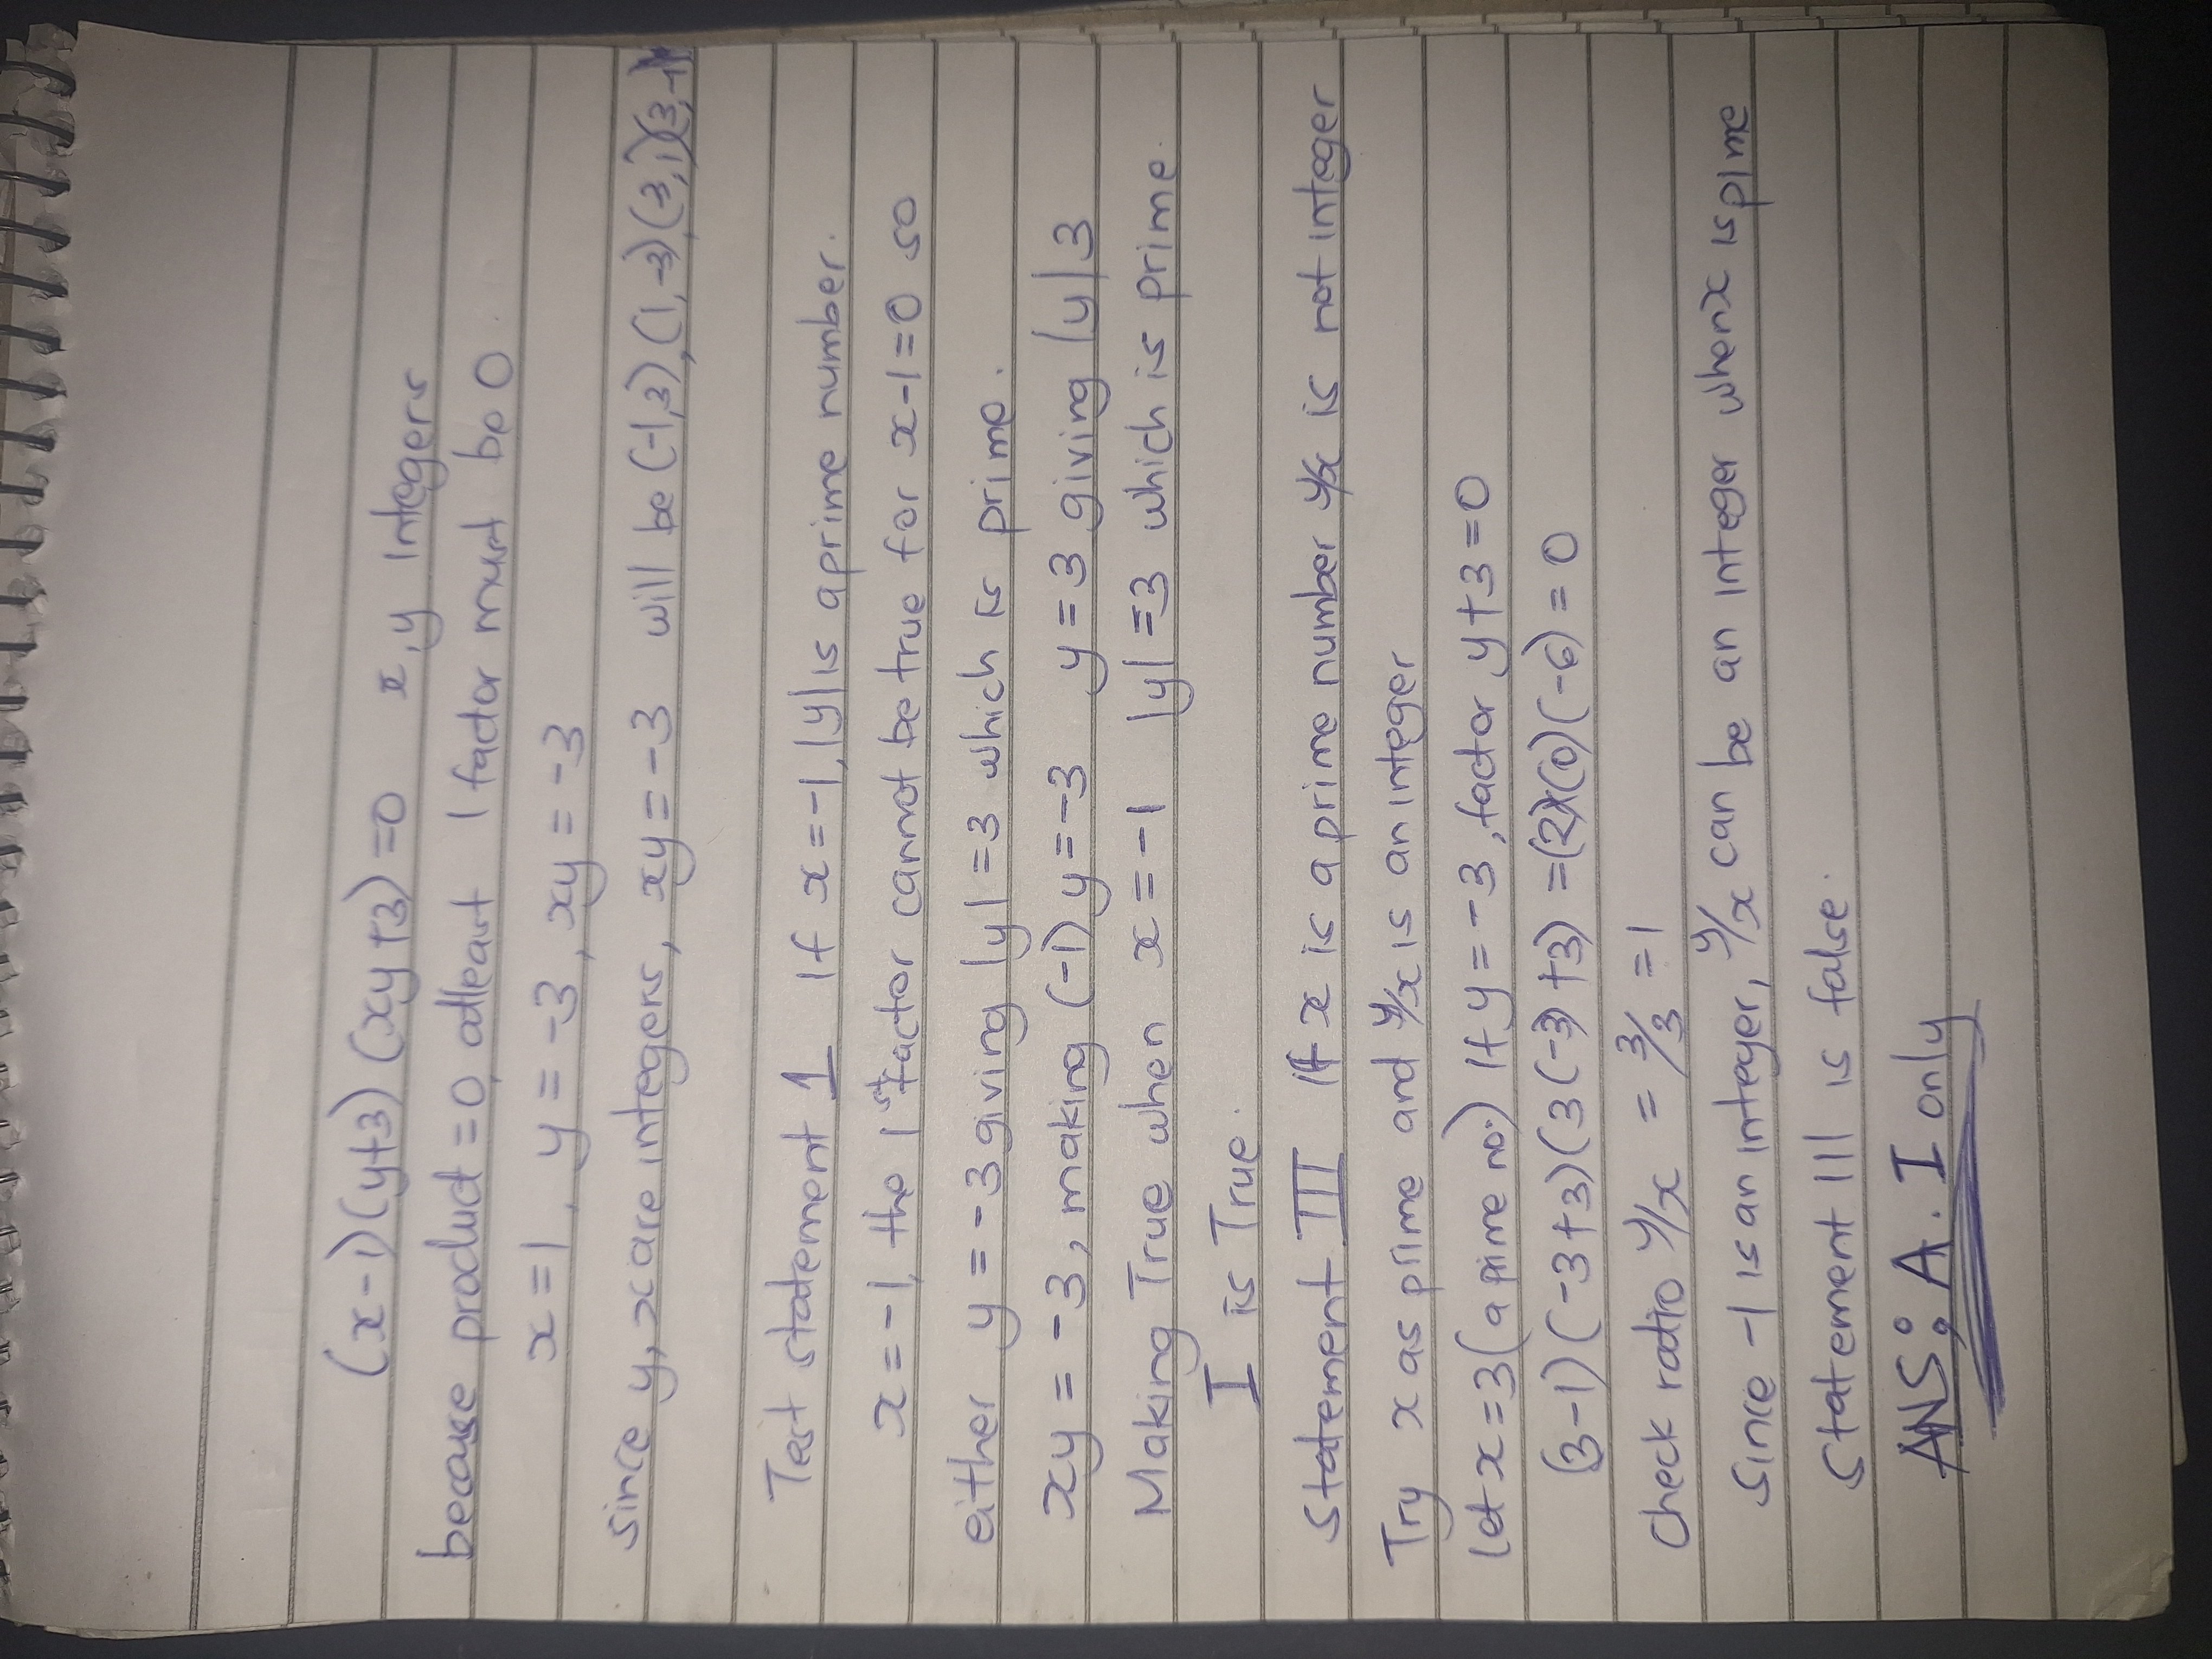 (x-1)(y+3)(xy+3)=0 x,y Integers
because product=0, atleast 1 factor must be 0.
x=1, y=-3, xy=-3
since y,x are integers, xy=-3 will be (-1,3),(1,-3),(3,1)(3,-1
Test statement 1 If x=-1,|y| is a prime number.
x=-1, the 1st factor cannot be true for x-1=0 so
either y=-3 giving |y|=3 which is prime.
xy=-3, making (-1)y=-3 y=3 giving |y|3
Making True when x=-1 |y|=3 which is prime.
I is True.
Statement III If x is a prime number y/x is not integer
Try x as prime and y/x is an integer
Let x=3(a prime no.) If y=-3, factor y+3=0
(3-1)(-3+3)(3(-3)+3)=(2)(0)(-6)=0
Check ratio y/x = 3/3 =1
Since -1 is an integer, y/x can be an integer when x is pime
Statement III is false.
ANS: A. I only